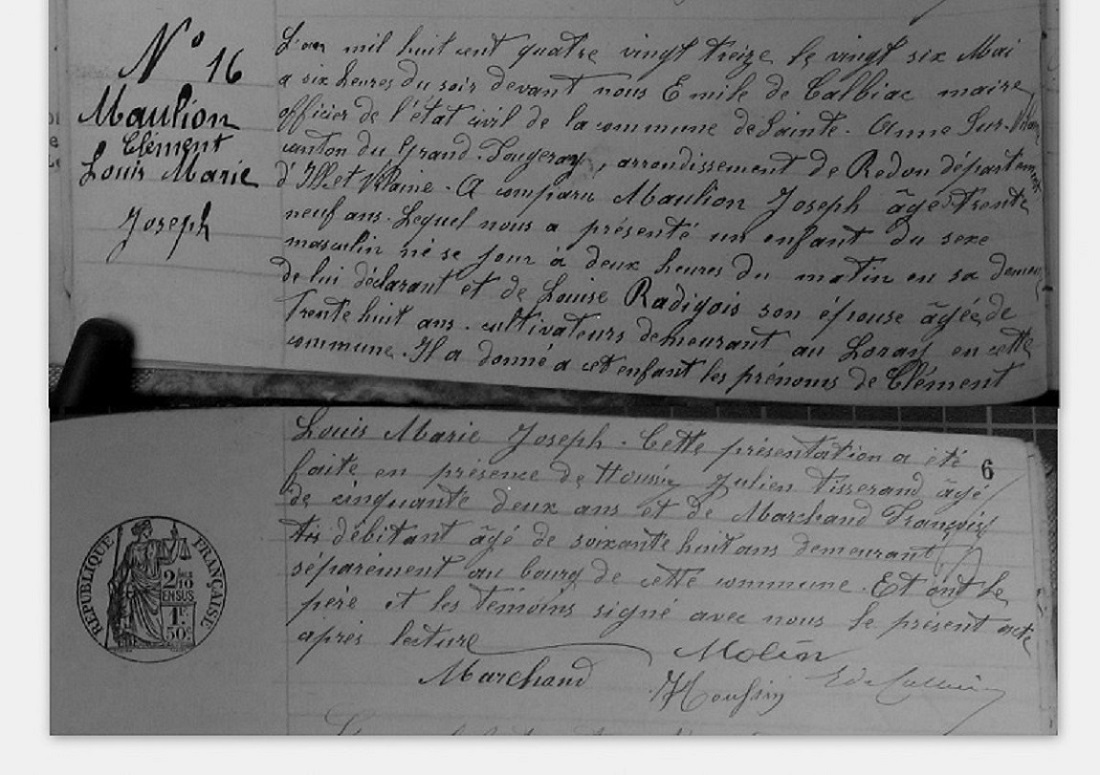 N° 16
Maulion
Clément
Louis Marie
Joseph
L'an mil huit cent quatre vingt treize le vingt six Mai
a six heures du soir devant nous Emile de Calbiac maire
officier de l'état civil de la commune de Sainte-Anne Sur-Vilaine
canton du Grand-Fougeray, arrondissement de Redon département
d'Ille et Vilaine. A comparu Maulion Joseph âgé trente
neuf ans. Lequel nous a présenté un enfant du sexe
masculin né se jour à deux heures du matin en sa demeure
de lui déclarant et de Louise Radigois son épouse âgéé de
trente huit ans. cultivateurs demeurant au Loray en cette
commune. Il a donné a cet enfant les prénoms de Clément
Louis Marie Joseph. Cette présentation a été
6
faite en présence de Houssin Julien tisserand âgé
de cinquante deux ans et de Marchand François
débitant âgé de soixante huit ans demeurant
séparément au bourg de cette commune. Et ont le
père et les témoins signé avec nous le présent acte
après lecture
Molion
Marchand
Houssin
RÉPUBLIQUE FRANÇAISE
2/10
EN SUS
1F
50c